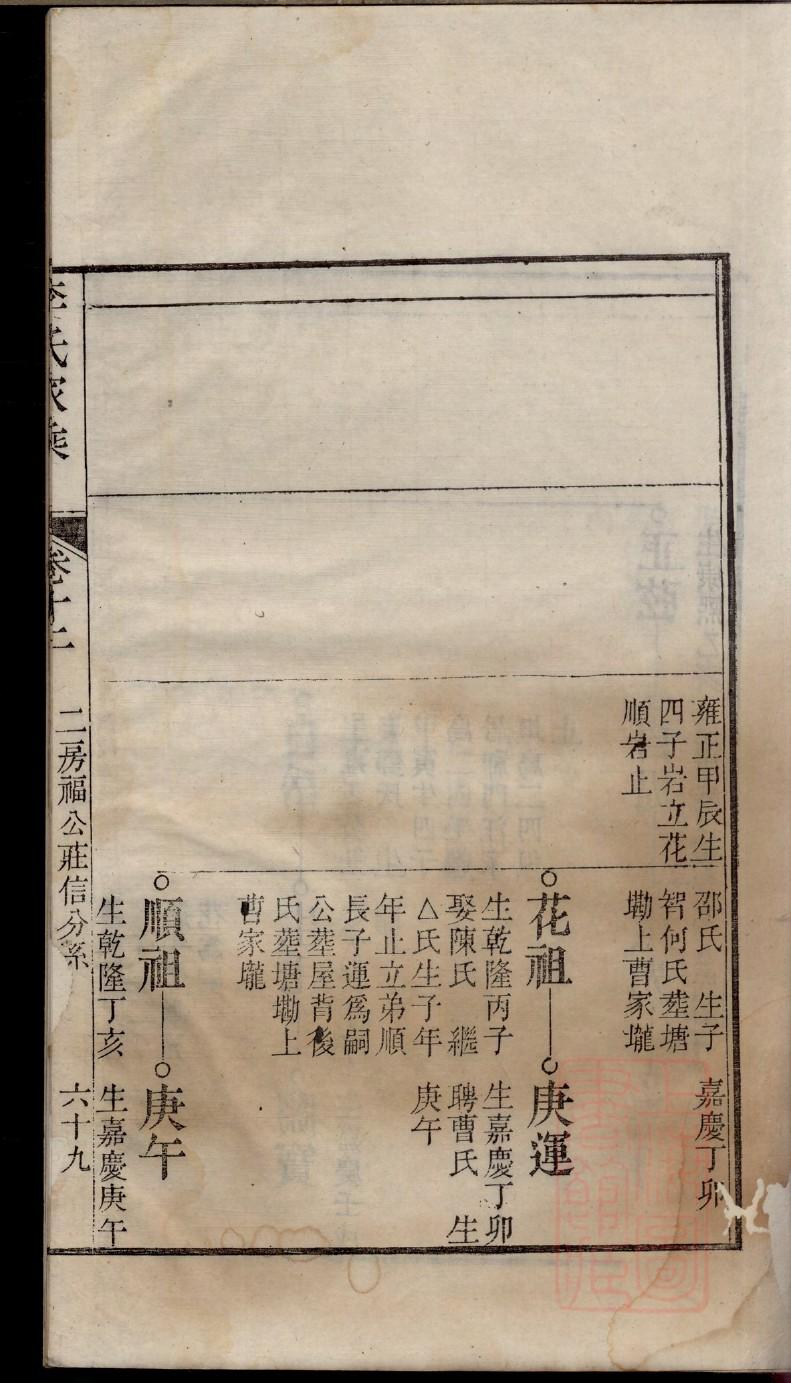 雍正甲辰生
四子岩立花
順岩止
邵氏　生子
智何氏塟塘
墈上曹家壠
嘉慶丁卯
花祖
生乾隆丙子
娶陳氏　繼
△氏生子年
年止立弟順
長子運爲嗣
公塟屋背後
氏塟塘墈上
曹家壠
庚運
生嘉慶丁卯
聘曹氏　生
庚午
順祖
生乾隆丁亥
庚午
生嘉慶庚午
李氏家乘
卷十二
二房福公莊信分系
六十九